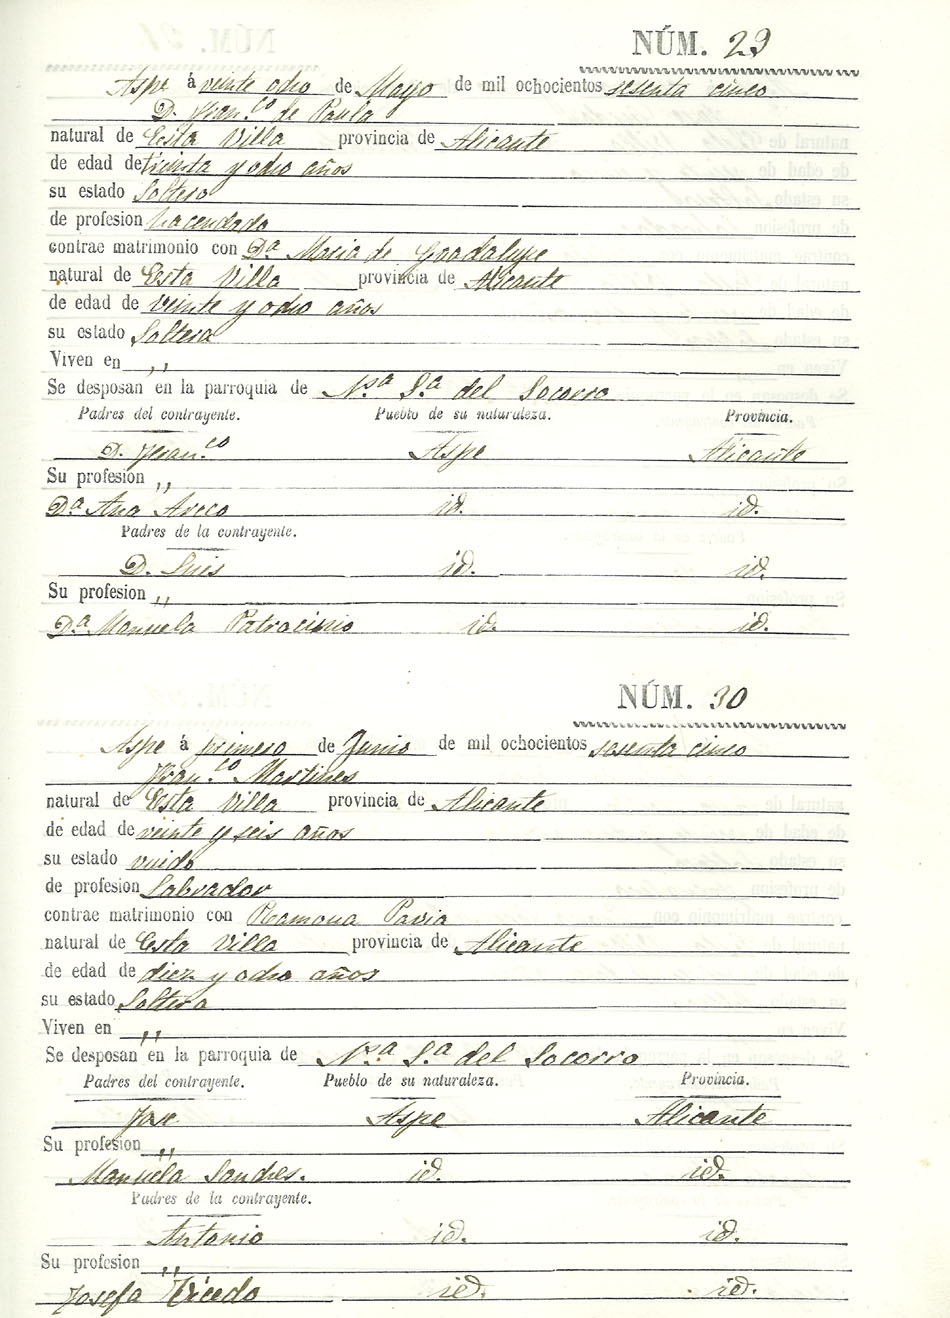 NÚM. 29
Aspe á veinte ocho de Mayo de mil ochocientos sesenta cinco
D. Fran.co de Paula
natural de Esta Villa provincia de Alicante
de edad de treinta y ocho años
su estado Soltero
de profesion hacendado
contrae matrimonio con Da. Maria de Guadalupe
natural de Esta Villa provincia de Alicante
de edad de veinte y ocho años
su estado Soltera
Viven en ,,
Se desposan en la parroquia de N.sa S.a del Socorro
Padres del contrayente. Pueblo de su naturaleza. Provincia.
D. Fran.co Aspe Alicante
Su profesion ,,
Da. Ana id. id.
Padres de la contrayente.
D. Luis id. id.
Su profesion ,,
Da. Manuela Patrocinio id. id.
NÚM. 30
Aspe á primero de Junio de mil ochocientos sesenta cinco
Fran.co Martines
natural de Esta Villa provincia de Alicante
de edad de veinte y seis años
su estado vuido
de profesion Labrador
contrae matrimonio con Ramona Pavia
natural de Esta Villa provincia de Alicante
de edad de diez y ocho años
su estado Soltera
Viven en ,,
Se desposan en la parroquia de N.sa S.a del Socorro
Padres del contrayente. Pueblo de su naturaleza. Provincia.
Jose Aspe Alicante
Su profesion ,,
Manuela id. id.
Padres de la contrayente.
Antonio id. id.
Su profesion ,,
Josefa Vicedo id. id.